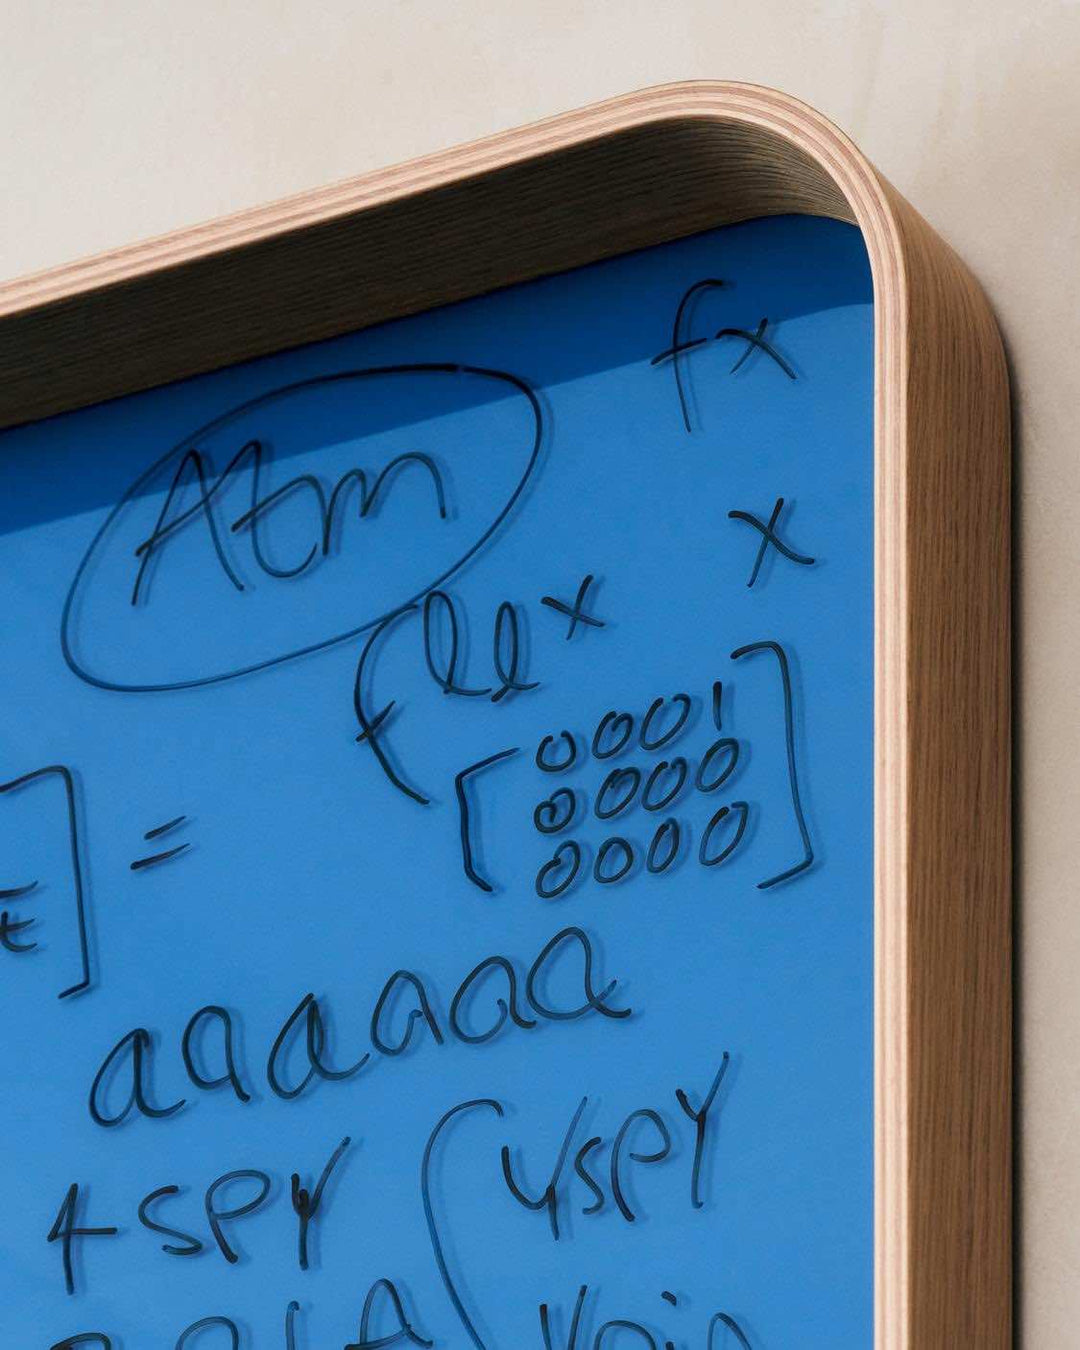 fx
Atm
x
llx
[0001
0000
0000]
] =
t
aaaaaa
4SPY (4SPY